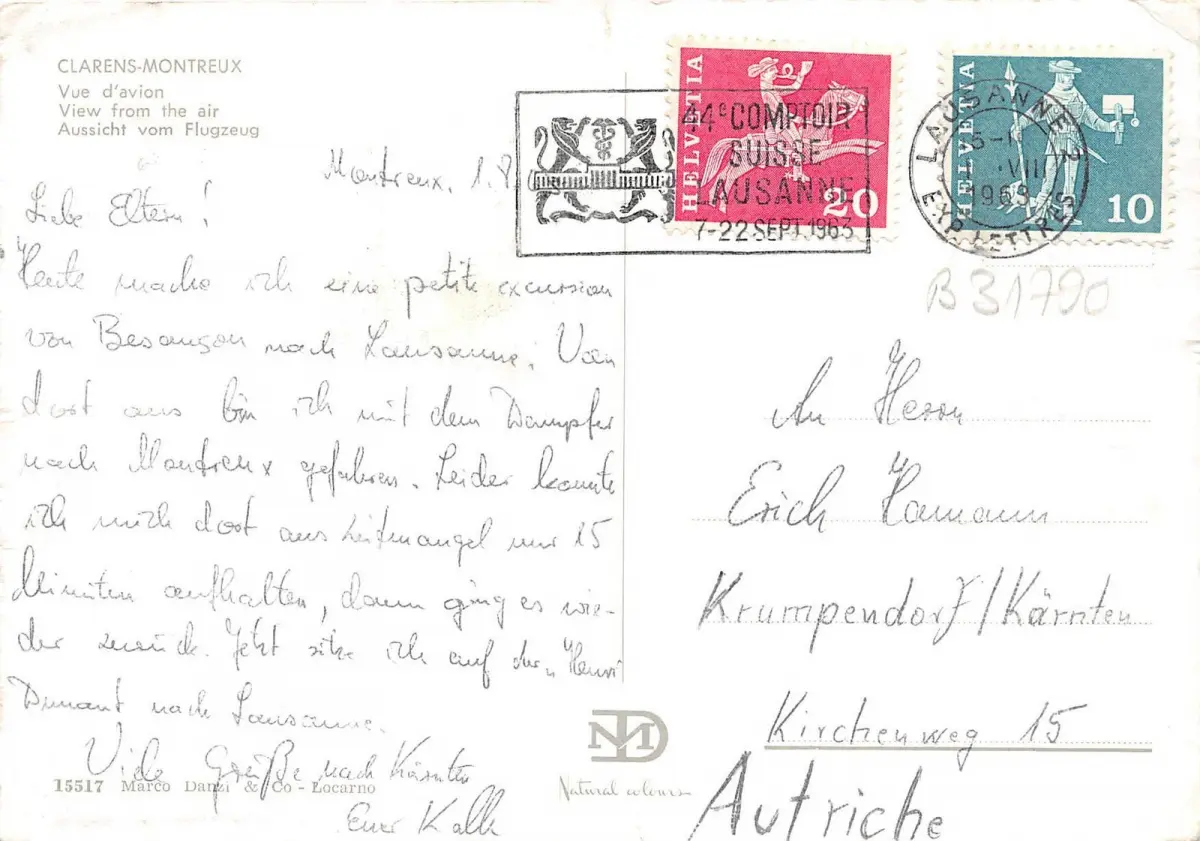 CLARENS-MONTREUX
Vue d'avion
View from the air
Aussicht vom Flugzeug
Montreux, 1.8.
Liebe Eltern!
Heute mache ich eine petite excursion
von Besançon nach Lausanne. Von
dort aus bin ich mit dem Dampfer
nach Montreux gefahren. Leider konnte
ich mich dort aus Zeitmangel nur 15
Minuten aufhalten, dann ging es wie-
der zurück. Jetzt sitze ich auf der „Henri
Dunant nach Lausanne.
Viele Grüße nach Kärnten
Euer
15517 Marco Danzi & Co - Locarno
HELVETIA
20
HELVETIA
10
44e COMPTOIR
SUISSE
LAUSANNE
7-22 SEPT. 1963
LAUSANNE 2
VIII
1963
EXP. LETTRES
B 31790
An Herrn
Erich Hamann
Krumpendorf/Kärnten
Kirchenweg 15
Autriche
Natural colours